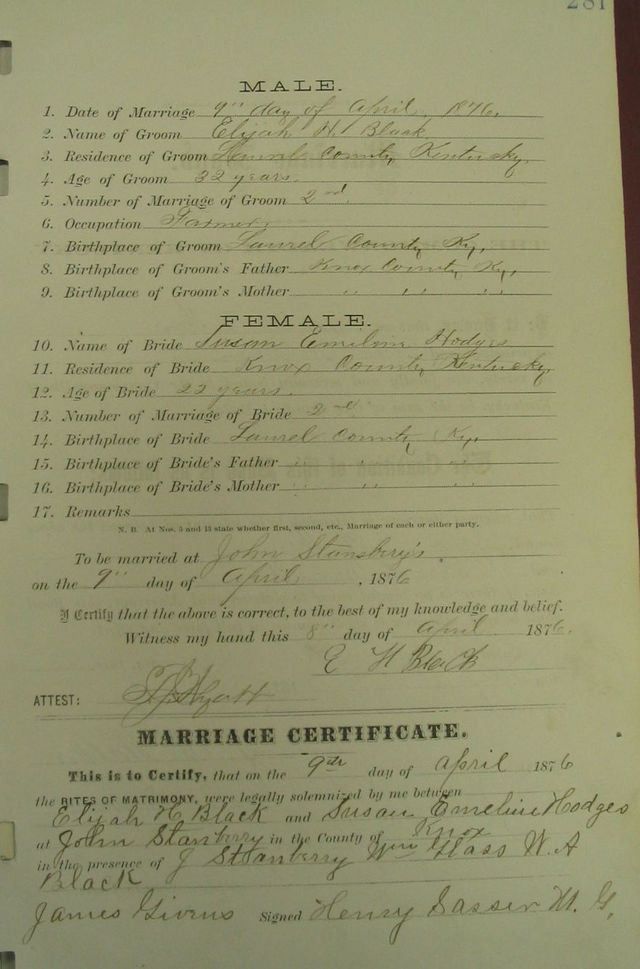 281
MALE.
1. Date of Marriage 9" day of April, 1876.
2. Name of Groom Elijah H. Black
3. Residence of Groom Laurel County, Kentucky.
4. Age of Groom 32 years.
5. Number of Marriage of Groom 2nd.
6. Occupation Farmer
7. Birthplace of Groom Laurel County Ky.
8. Birthplace of Groom's Father Knox County Ky.
9. Birthplace of Groom's Mother " " "
FEMALE.
10. Name of Bride Susan Emeline Hodges
11. Residence of Bride Knox County, Kentucky
12. Age of Bride 22 years.
13. Number of Marriage of Bride 2nd
14. Birthplace of Bride Laurel County Ky.
15. Birthplace of Bride's Father " " "
16. Birthplace of Bride's Mother " " "
17. Remarks
N. B. At Nos. 5 and 13 state whether first, second, etc., Marriage of each or either party.
To be married at John Stansbery's.
on the 9" day of April, 1876
I Certify that the above is correct, to the best of my knowledge and belief.
Witness my hand this 8" day of April 1876.
E H Black
ATTEST:
MARRIAGE CERTIFICATE.
This is to Certify, that on the 9th day of April 1876
the RITES OF MATRIMONY, were legally solemnized by me between
Elijah H. Black and Susan Emeline Hodges
at John Stanberry in the County of Knox
in the presence of J Stranberry Wm Hass W. A
Black
James Givens Signed Henry Sasser M. G,